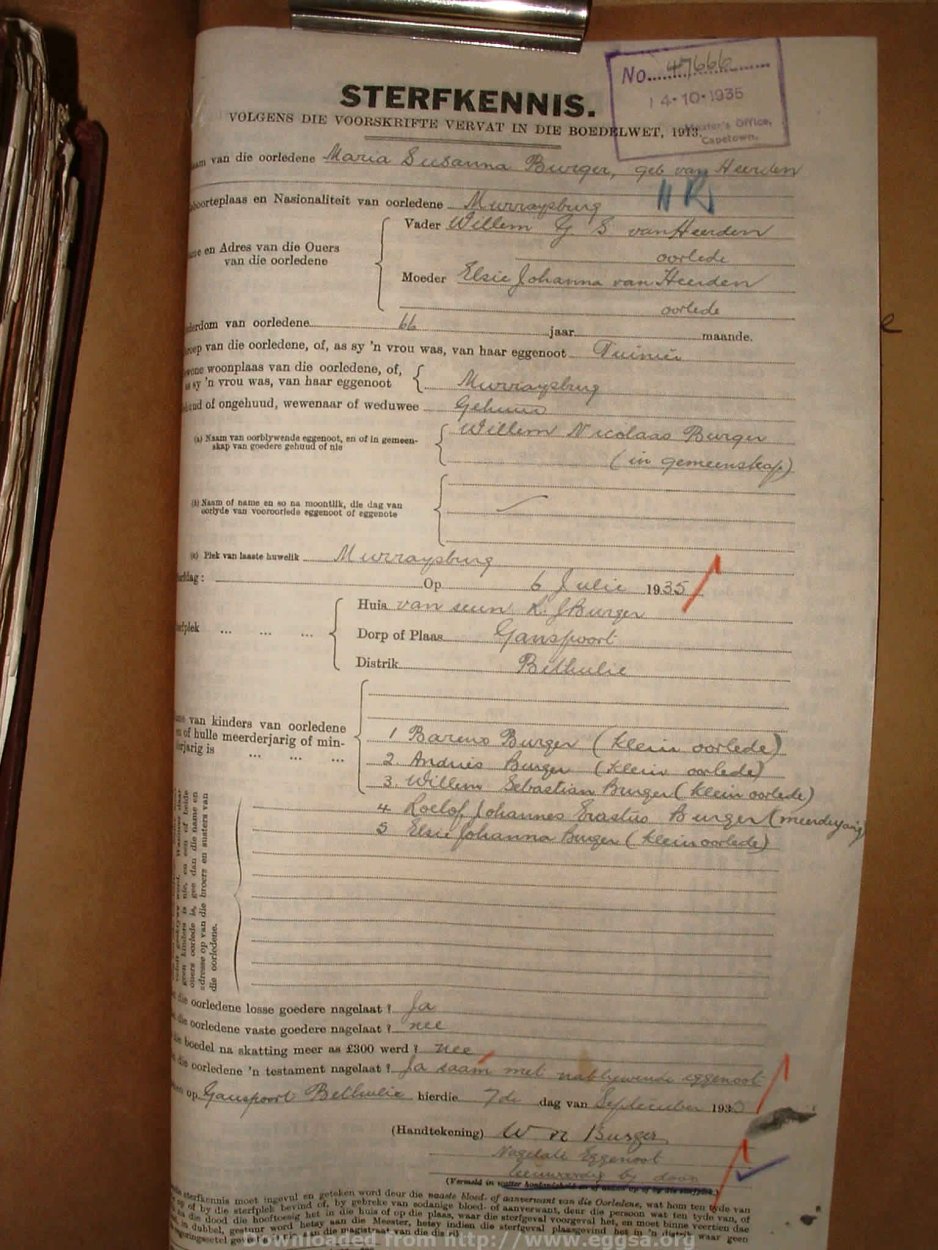 No. 47666
14-10-1935
Master's Office,
Capetown.
STERFKENNIS.
VOLGENS DIE VOORSKRIFTE VERVAT IN DIE BOEDELWET, 1913.
van die oorledene Maria Susanna Burger, geb van Heerden
en Nasionaliteit van oorledene Murraysburg
Vader Willem G S van Heerden
oorlede
en Adres van die Ouers
van die oorledene
Moeder Elsie Johanna van Heerden
oorlede
van oorledene 66 jaar maande.
van die oorledene, of, as sy 'n vrou was, van haar eggenoot Tuinier
woonplaas van die oorledene, of,
as sy 'n vrou was, van haar eggenoot Murraysburg
of ongehuud, wewenaar of weduwee Gehuud
(a) Naam van oorblywende eggenoot, en of in gemeen-
skap van goedere gehuud of nie
Willem Nicolaas Burger
(in gemeenskap)
(b) Naam of name en so na moontlik, die dag van
oorlyde van vooroorlede eggenoot of eggenote
(c) Plek van laaste huwelik Murraysburg
Op 6 Julie 1935
Huis van seun R. J Burger
Dorp of Plaas Ganspoort
Distrik Bethulie
van kinders van oorledene
of hulle meerderjarig of min-
derjarig is
1 Barend Burger (klein oorlede)
2 Andries Burger (klein oorlede)
3. Willem Sebastian Burger (klein oorlede)
4 Roelof Johannes Erastus Burger (meerderjarig)
5 Elsie Johanna Burger (klein oorlede)
geen kinders is nie, en een of beide
ouers oorlede is, gee dan die name en
adresse op van die broers en susters van
die oorledene.
die oorledene losse goedere nagelaat? Ja
die oorledene vaste goedere nagelaat? nee
boedel na skatting meer as £300 werd? nee
die oorledene 'n testament nagelaat? Ja saam met nablywende eggenoot
op Ganspoort Bethulie hierdie 7de dag van September 1935
(Handtekening) W N Burger
Eggenoot
(Vermeld in watter hoedanigheid
sterfkennis moet ingevul en geteken word deur die naaste bloed- of aanverwant van die Oorledene, wat hom ten tyde van
of by die sterfplek bevind of, by gebreke van sodanige bloed- of aanverwant, deur die persoon wat ten tyde van, of
die dood die hooftoesig het in die huis of op die plaas, waar die sterfgeval voorgeval het, en moet binne veertien dae
in dubbel, gestuur word hetsy aan die Meester, hetsy indien die sterfgeval plaasgevind het in 'n distrik waar geen
Downloaded from http://www.eggsa.org